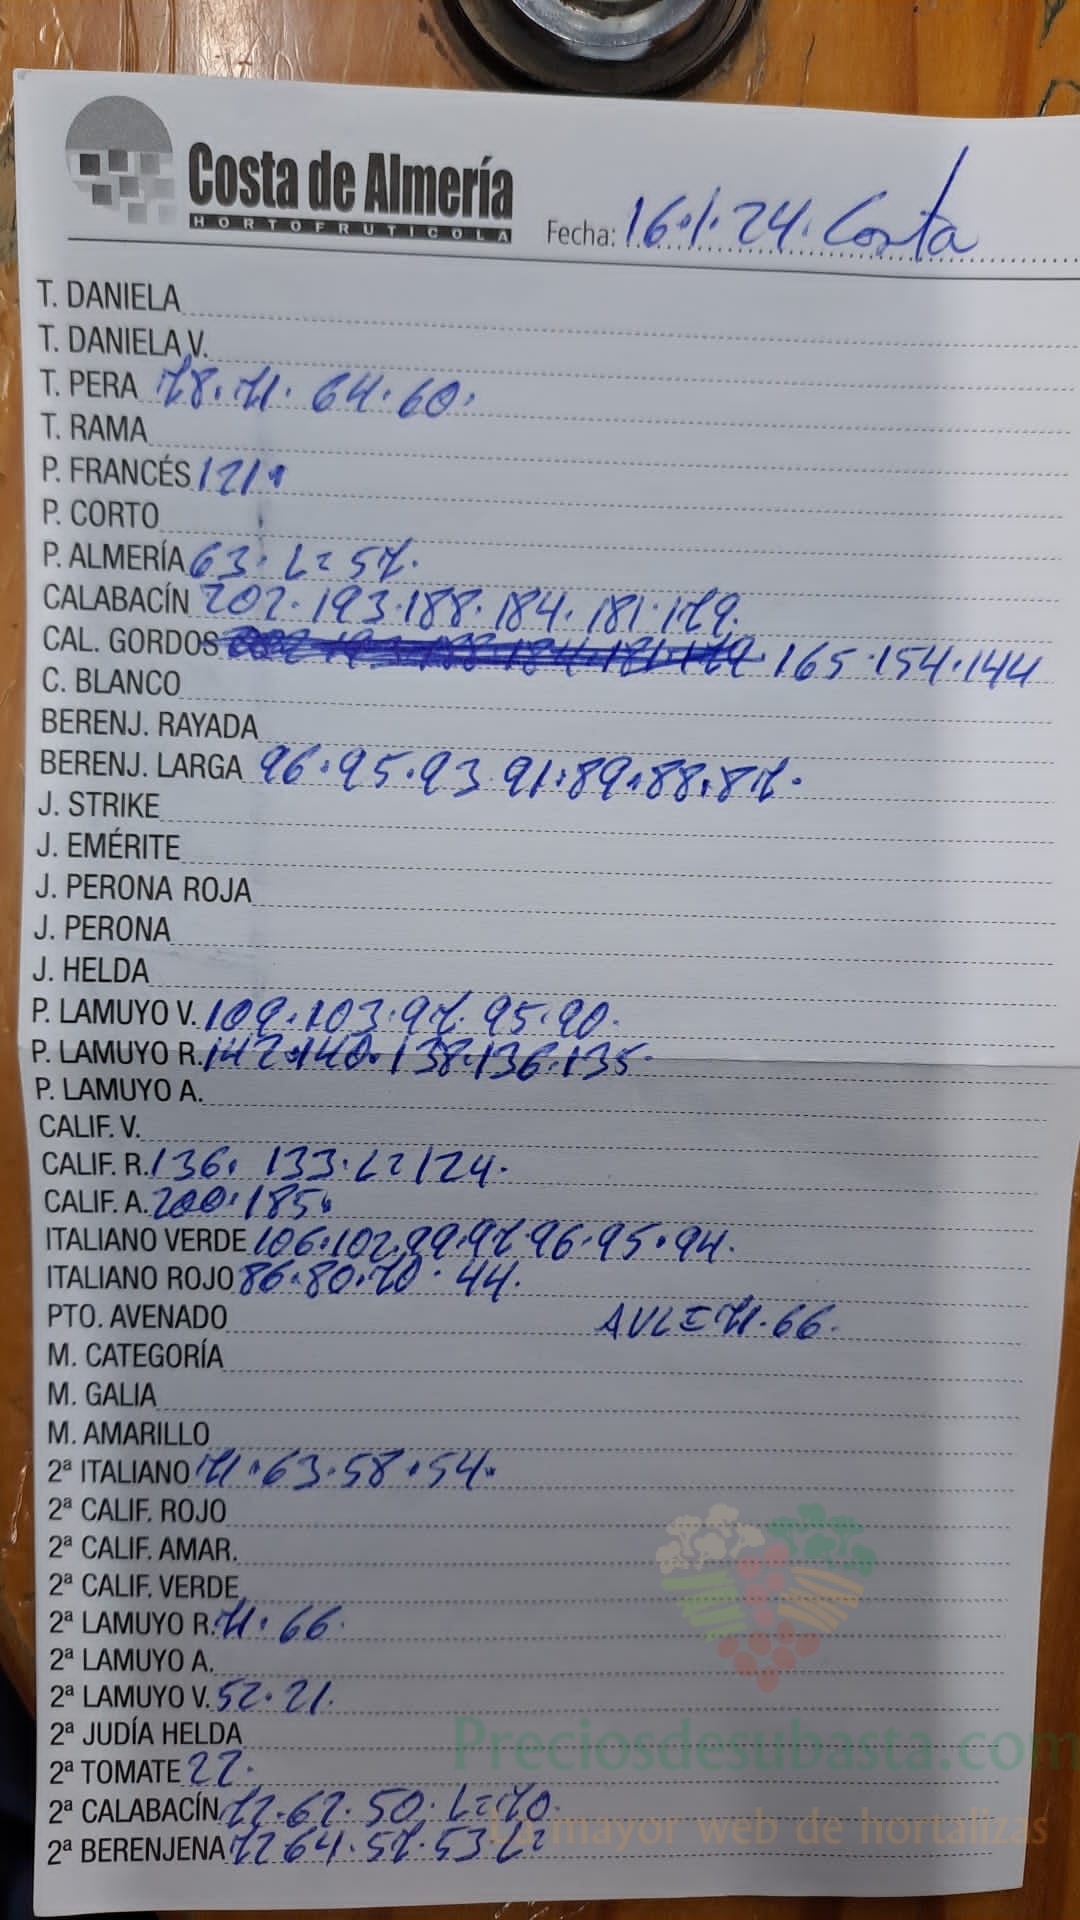 Costa de Almería
HORTOFRUTICOLA
Fecha: 16.1.24. Costa
T. DANIELA
T. DANIELA V.
T. PERA 78.71. 64.60.
T. RAMA
P. FRANCÉS 121.
P. CORTO
P. ALMERÍA 63. L= 57.
CALABACÍN 202.193.188.184.181.179.
CAL. GORDOS 202 193 188 184.181.179 . 165.154.144
C. BLANCO
BERENJ. RAYADA
BERENJ. LARGA 96.95.93 91.89.88.87.
J. STRIKE
J. EMÉRITE
J. PERONA ROJA
J. PERONA
J. HELDA
P. LAMUYO V. 109.103.97. 95.90.
P. LAMUYO R. 142.140. 138.136.135.
P. LAMUYO A.
CALIF. V.
CALIF. R. 136. 133. L= 124.
CALIF. A. 200. 185.
ITALIANO VERDE 106.102.99.97.96.95.94.
ITALIANO ROJO 86.80.70. 44.
PTO. AVENADO AVL= 71.66.
M. CATEGORÍA
M. GALIA
M. AMARILLO
2ª ITALIANO 71.63.58.54.
2ª CALIF. ROJO
2ª CALIF. AMAR.
2ª CALIF. VERDE
2ª LAMUYO R. 71. 66.
2ª LAMUYO A.
2ª LAMUYO V. 52.21.
2ª JUDÍA HELDA
Preciosdesubasta.com
2ª TOMATE 22.
2ª CALABACÍN 72.62.50. L= 70.
La mayor web de hortalizas
2ª BERENJENA 72 64.57.53 L=